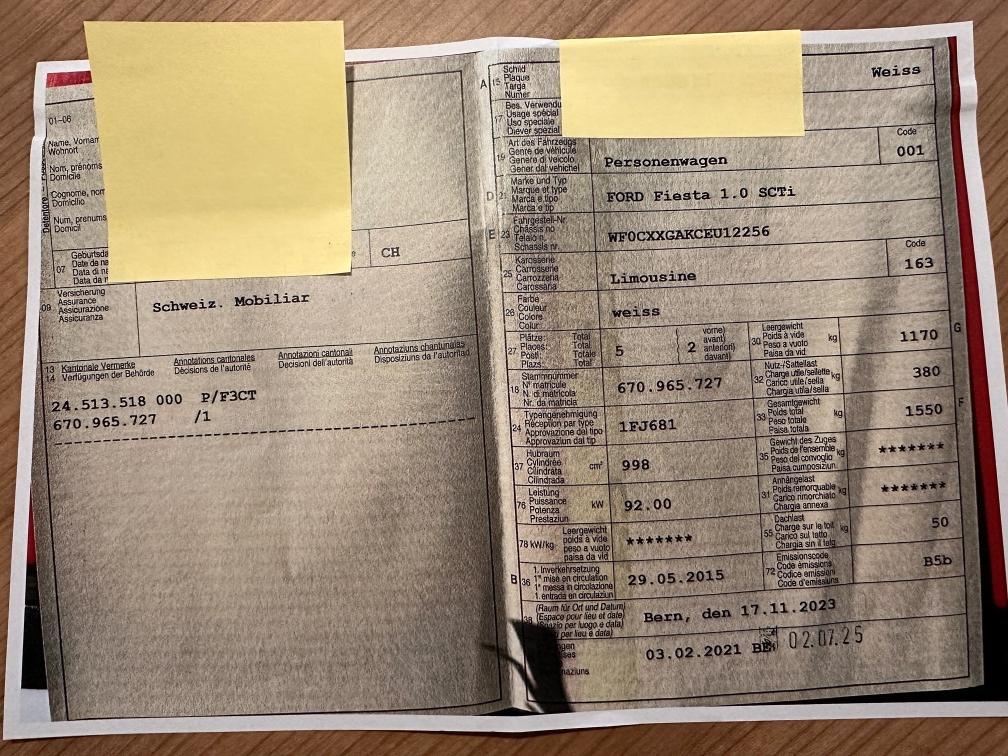 01-06
Name, Vornam
Wohnort
Nom, prénoms
Domicile
Cognome, nom
Domicilio
Num, prenums
Domicil
07
Geburtsda
Date de na
Data di na
Data da n
CH
09
Versicherung
Assurance
Assicurazione
Assicuranza
Schweiz. Mobiliar
13 Kantonale Vermerke Annotations cantonales Annotazioni cantonali Annotaziuns chantunalas
14 Verfügungen der Behörde Décisions de l'autorité Decisioni dell'autorità Disposiziuns da l'autoritad
24.513.518 000 P/F3CT
670.965.727 /1
A 15
Schild
Plaque
Targa
Numer
Weiss
17
Bes. Verwendu
Usage spécial
Uso speciale
Diever spezial
19
Art des Fahrzeugs
Genre de véhicule
Genere di veicolo
Gener dal vehichel
Personenwagen
Code
001
D
Marke und Typ
Marque et type
Marca e tipo
Marca e tip
FORD Fiesta 1.0 SCTi
E 23
Fahrgestell-Nr.
Châssis no
Telaio n.
Schassis nr.
WF0CXXGAKCEU12256
25
Karosserie
Carrosserie
Carrozzeria
Carossaria
Limousine
Code
163
26
Farbe
Couleur
Colore
Colur
weiss
27
Plätze: Total
Places: Total
Posti: Totale
Plazs: Total
5
2
vorne)
avant)
anteriori)
davant)
30
Leergewicht
Poids à vide
Peso a vuoto
Paisa da vid
kg
1170
G
18
Stammnummer
N° matricule
N. di matricola
Nr. da matricla
670.965.727
32
Nutz-/Sattellast
Charge utile/sellette
Carico utile/sella
Chargia utila/sella
kg
380
24
Typengenehmigung
Réception par type
Approvazione del tipo
Approvaziun dal tip
1FJ681
33
Gesamtgewicht
Poids total
Peso totale
Paisa totala
kg
1550
F
37
Hubraum
Cylindrée
Cilindrata
Cilindrada
cm³
998
35
Gewicht des Zuges
Poids de l'ensemble
Peso del convoglio
Paisa cumposiziun
kg
*******
76
Leistung
Puissance
Potenza
Prestaziun
kW
92.00
31
Anhängelast
Poids remorquable
Carico rimorchiato
Chargia annexa
kg
*******
78 kW/kg
Leergewicht
poids à vide
peso a vuoto
paisa da vid
*******
55
Dachlast
Charge sur le toit
Carico sul tetto
Chargia sin il tetg
kg
50
B 36
1. Inverkehrsetzung
1re mise en circulation
1a messa in circolazione
1. entrada en circulaziun
29.05.2015
72
Emissionscode
Code émissions
Codice emissioni
Code d'emissiuns
B5b
38
(Raum für Ort und Datum)
(Espace pour lieu et date)
(Spazio per luogo e data)
per lieu e data)
Bern, den 17.11.2023
03.02.2021 BE
02.07.25